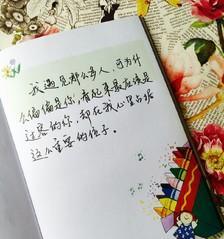 我遇见那么多人,可为什
么偏偏是你,看起来最应该是
过客的你,却在我心里占据
这么重要的位子。